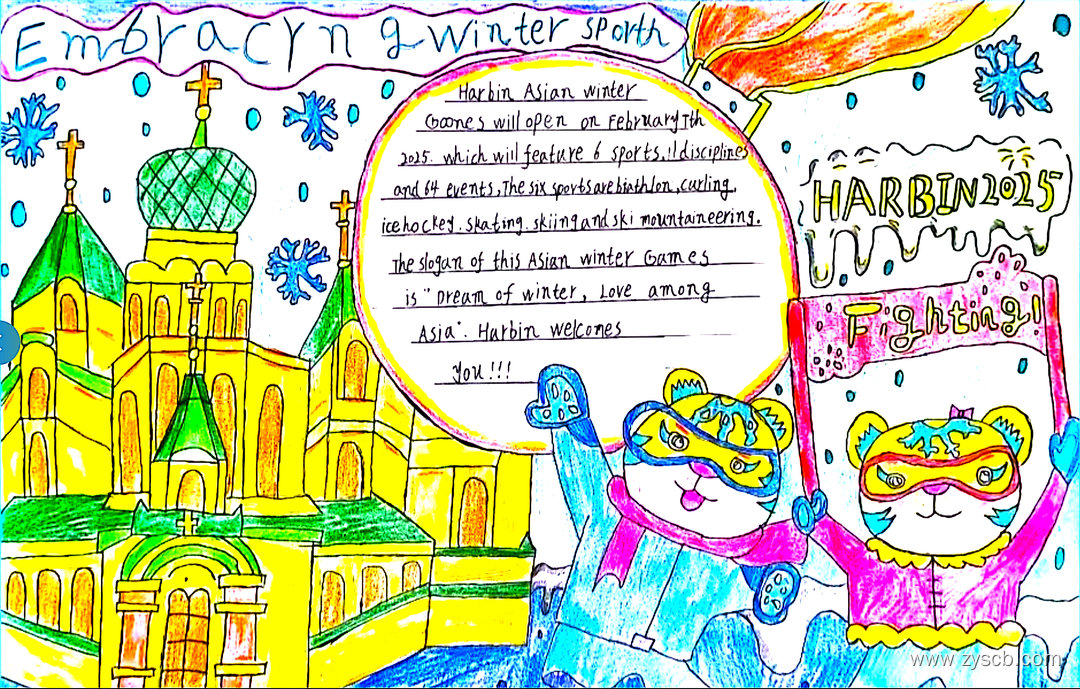 Embracyng winter sporth
Harbin Asian winter
Goones will open on February 7th
2025. which will feature 6 sports, 11 disciplines
and 64 events, The six sports are biathlon, curling,
ice hockey. skating. skiing and ski mountaineering.
The slogan of this Asian winter Games
is "Dream of winter, Love among
Asia". Harbin welcomes
you!!!
HARBIN2025
Fighting!
www.zyscb.com